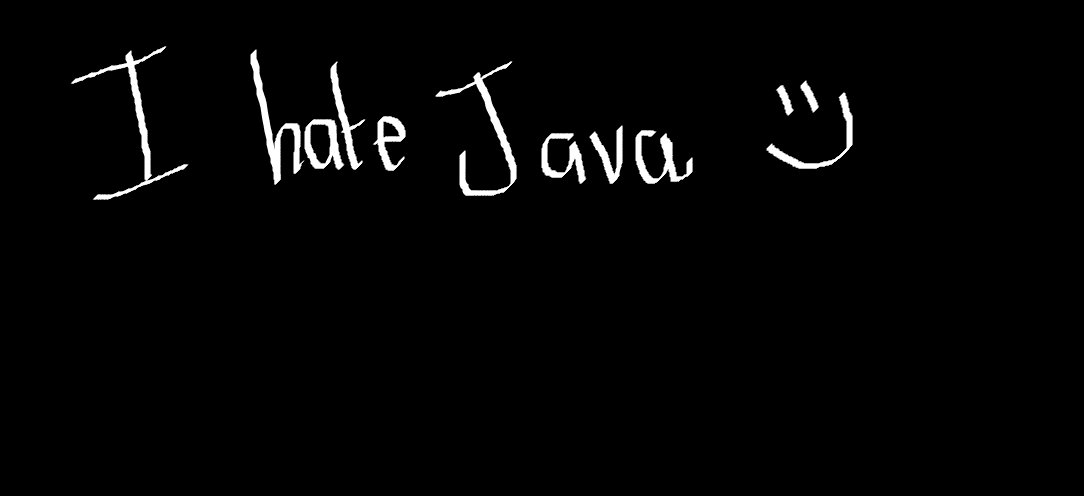 I hate Java